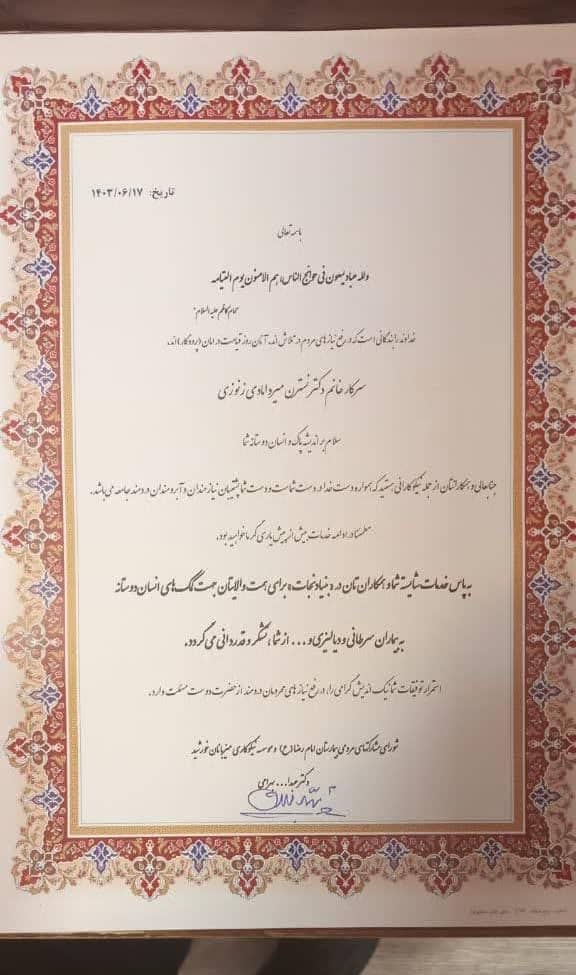 تاریخ: ۱۴۰۳/۰۶/۱۷
باسمه تعالی
ولله عباد یسعون فی حوائج الناس، هم الامنون یوم القیامه
"امام کاظم علیه السلام"
خداوند را بندگانی است که در رفع نیازهای مردم در تلاش اند، آنان روز قیامت در امان (پروردگار) اند.
سرکار خانم دکتر نسترن میردامادی زنوزی
سلام بر اندیشه پاک و انسان دوستانه شما
جنابعالی و همکارانتان از جمله نیکوکارانی هستید که همواره دست خدا در دست شماست و دست شما پشتیبان نیازمندان و آبرومندان دردمند جامعه می باشد.
مطمئنا در ادامه خدمات بیش از پیش یاری گر ما خواهید بود.
به پاس خدمات شایسته شما و همکاران تان در «بنیاد نجات» برای همت والایتان جهت کمک های انسان دوستانه
به بیماران سرطانی و دیالیزی و ... از شما، تشکر و قدردانی می گردد.
استمرار توفیقات شما نیک اندیش گرامی را، در رفع نیازهای محرومان دردمند از حضرت دوست مسئلت دارد.
شورای مشارکتهای مردمی بیمارستان امام رضا (ع) و موسسه نیکوکاری میزبانان خورشید
دکتر